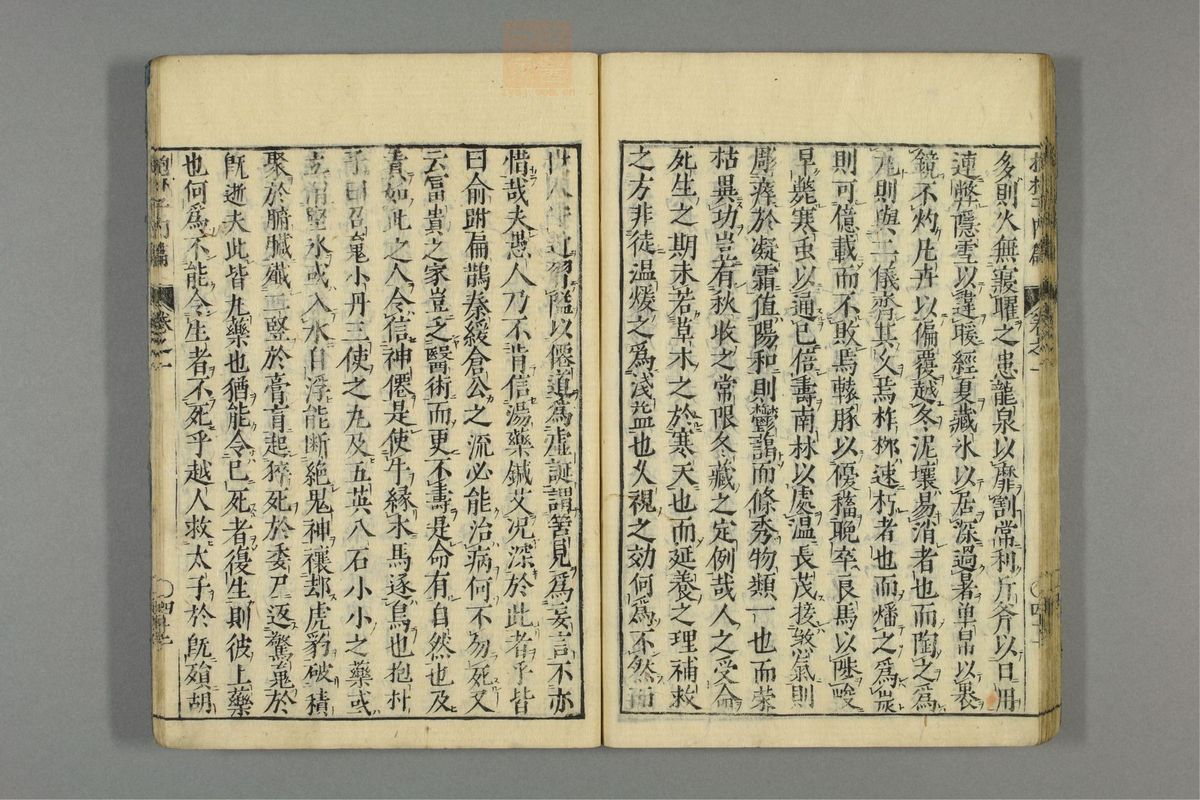 多則火無寢曜之患龍泉以靡割常利斤斧以日用
速弊隱雪以違暖經夏藏氷以居深過暑单帛以裹
鏡不灼凡卉以偏覆越冬泥壤易消者也而陶之爲
瓦則與二儀齊其久焉柞楢速朽者也而燔之爲炭
則可億載而不敗焉轅豚以優稸晩卒良馬以陟峻
早斃寒虫以適已倍壽南林以處温長茂接煞氣則
彫瘁於凝霜值陽和則鬱藹而條秀物類一也而榮
枯異功豈有秋收之常限冬藏之定例哉人之受命
死生之期未若草木之於寒天也而延養之理補救
之方非徒温煖之爲浅益也久視之効何爲不然而
世人守近習隘以僊道爲虚誕謂黃老爲妄言不亦
惜哉夫愚人乃不肯信湯藥鍼艾况深於此者乎皆
曰俞跗扁鵲秦緩倉公之流必能治病何不勿死又
云富貴之家豈乏醫術而更不壽是命有自然也及
責如此之人令信神僊是使牛縁木馬逐鳥也抱朴
子曰召魂小丹三使之丸及五英八石小小之藥或
立消堅氷或入水自浮能断絶鬼神禳却虎豹破積
聚於腑臓殲二竪於膏肓起猝死於委尸返驚䰟於
既逝夫此皆凡藥也猶能令已死者復生則彼上藥
也何爲不能令生者不死乎越人救太子於既殞胡
抱朴子内篇
卷之一
四十一